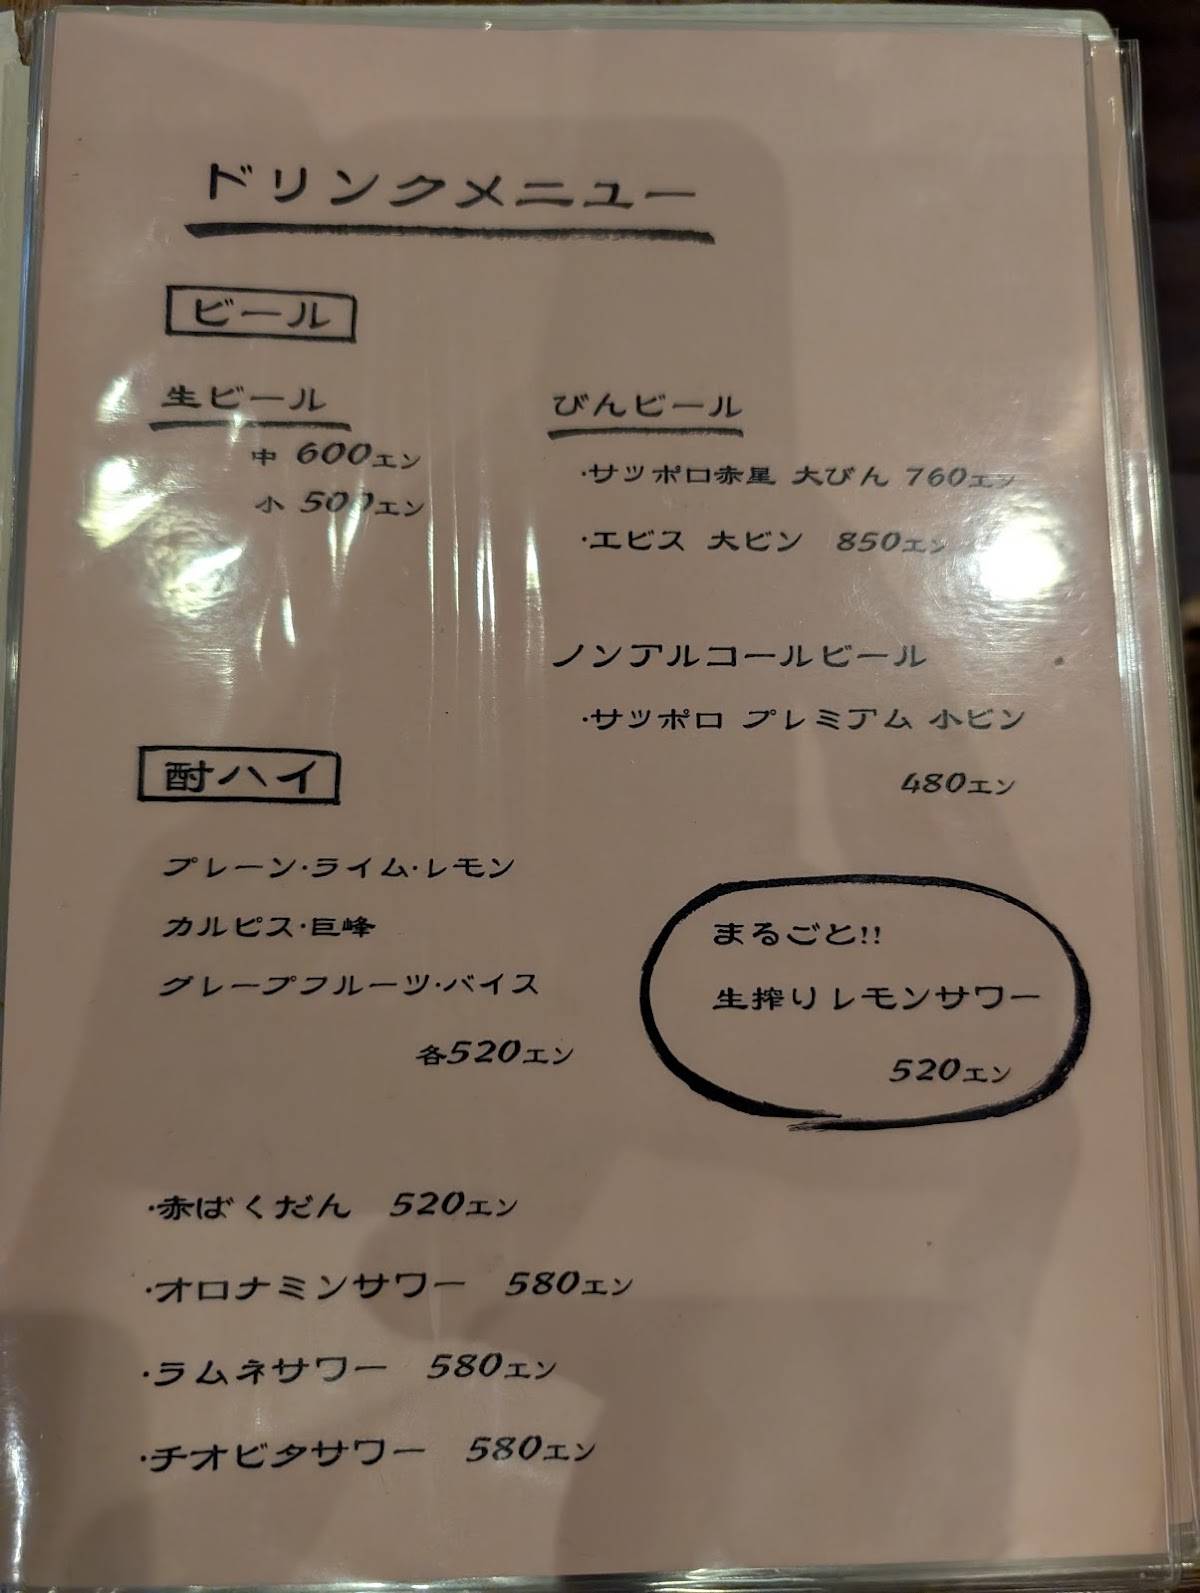 ドリンクメニュー
ビール
生ビール
中 600エン
小 500エン
びんビール
・サッポロ赤星 大びん 760エン
・エビス 大ビン 850エン
ノンアルコールビール
・サッポロ プレミアム 小ビン
480エン
酎ハイ
プレーン・ライム・レモン
カルピス・巨峰
グレープフルーツ・バイス
各520エン
まるごと!!
生搾りレモンサワー
520エン
・赤ばくだん 520エン
・オロナミンサワー 580エン
・ラムネサワー 580エン
・チオビタサワー 580エン